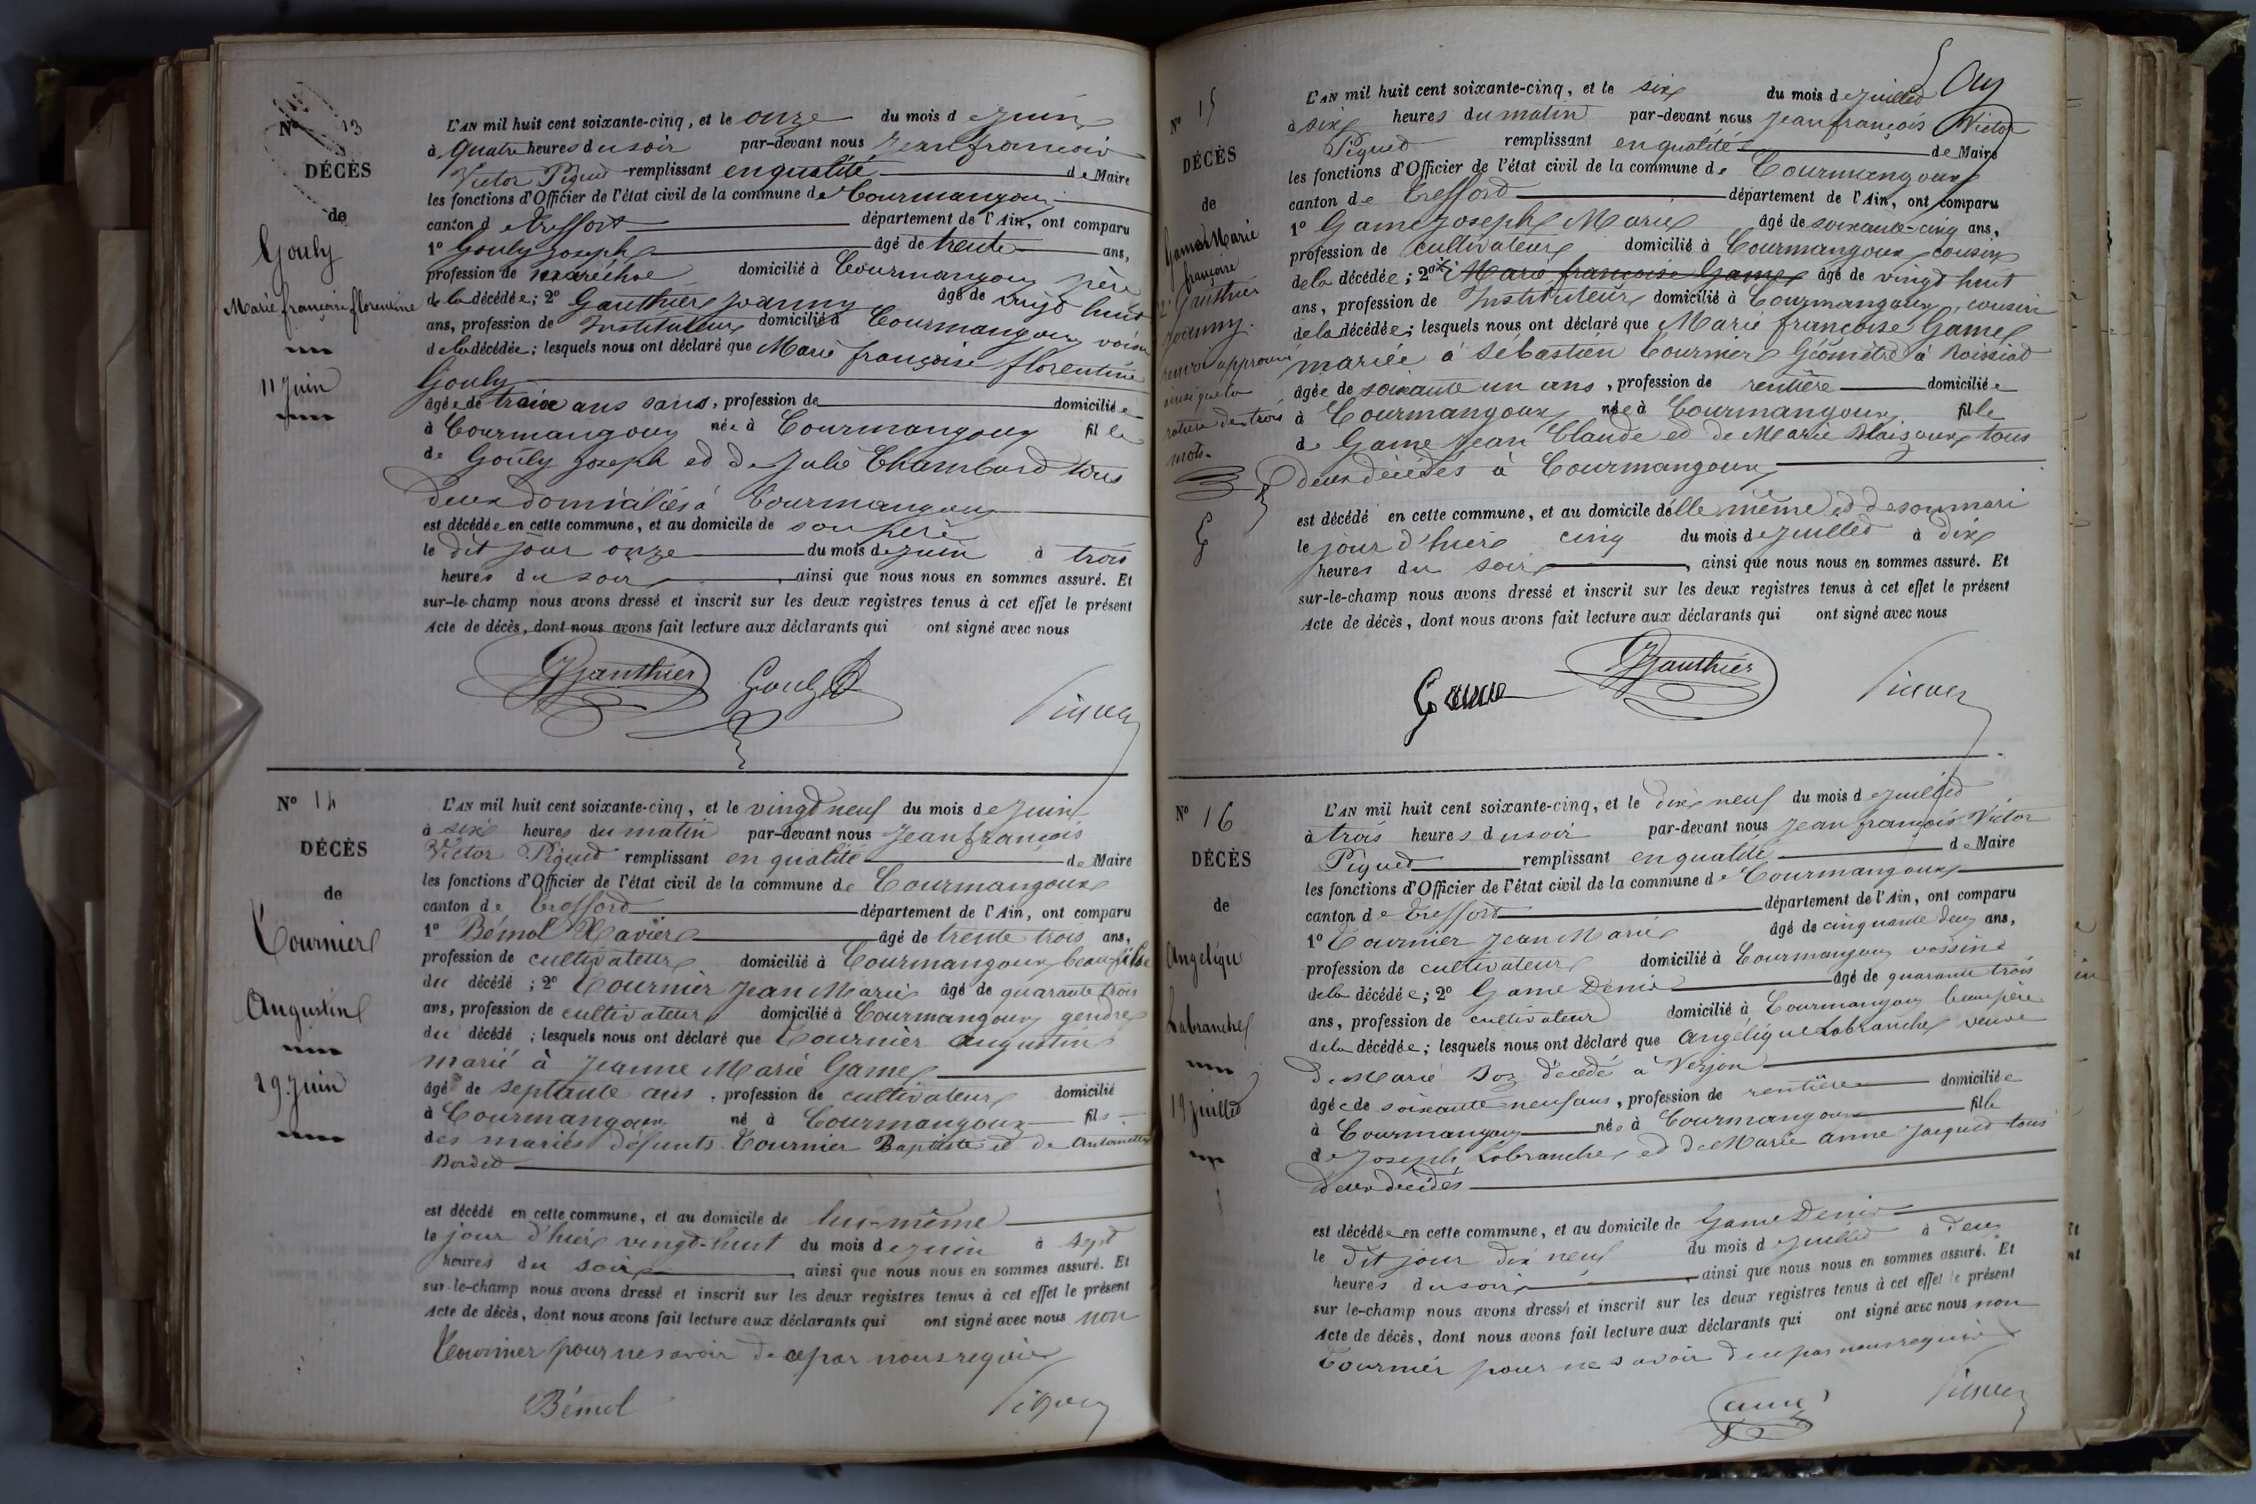 N° 13
DÉCÈS
de
Gouly
Marie françoise florentine
11 Juin
L'AN mil huit cent soixante-cinq, et le onze du mois de Juin
à Quatre heures du soir par-devant nous Jean françois
Victor Piquet remplissant en qualité de Maire
les fonctions d'Officier de l'état civil de la commune de Courmangoux
canton de treffort département de l'Ain, ont comparu
1° Gouly Joseph âgé de trente ans,
profession de maréchal domicilié à Courmangoux père
de la décédée; 2° Gauthier Joanny âgé de vingt huit
ans, profession de Instituteur domicilié à Courmangoux voisin
de la décédée; lesquels nous ont déclaré que Marie françoise florentine
Gouly
âgée de ans sans, profession de domiciliée
à Courmangoux née à Courmangoux fille
de Gouly Joseph et de Julie Chambard tous
deux domiciliés à Courmangoux
est décédée en cette commune, et au domicile de son père
le dit jour onze du mois de Juin à trois
heures du soir, ainsi que nous nous en sommes assuré. Et
sur-le-champ nous avons dressé et inscrit sur les deux registres tenus à cet effet le présent
Acte de décès, dont nous avons fait lecture aux déclarants qui ont signé avec nous
JGauthier Gouly Piquet
N° 14
DÉCÈS
de
Tournier
Augustin
29 Juin
L'AN mil huit cent soixante-cinq, et le vingt neuf du mois de Juin
à six heures du matin par-devant nous Jean françois
Victor Piquet remplissant en qualité de Maire
les fonctions d'Officier de l'état civil de la commune de Courmangoux
canton de Treffort département de l'Ain, ont comparu
1° Bémol Xavier âgé de trente trois ans,
profession de cultivateur domicilié à Courmangoux beau fils
du décédé; 2° Tournier Jean Marie âgé de quarante trois
ans, profession de cultivateur domicilié à Courmangoux gendre
du décédé; lesquels nous ont déclaré que Tournier Augustin
marié à Jeanne Marie Game
âgé de septante ans, profession de cultivateur domicilié
à Courmangoux né à Courmangoux fils
des mariés défunts Tournier Baptiste et de Antoinette
Bordet
est décédé en cette commune, et au domicile de lui-même
le jour d'hier vingt-huit du mois de Juin à sept
heures du soir, ainsi que nous nous en sommes assuré. Et
sur-le-champ nous avons dressé et inscrit sur les deux registres tenus à cet effet le présent
Acte de décès, dont nous avons fait lecture aux déclarants qui ont signé avec nous non
Tournier pour ne savoir de ce par nous requis
Bémol Piquet
N° 15
DÉCÈS
de
Game Marie
françoise
2° Gauthier
Joanny.
renvoi approuvé
ainsi que la
rature de trois
mots.
G
L'AN mil huit cent soixante-cinq, et le six du mois de Juillet
à six heures du matin par-devant nous Jean françois Victor
Piquet remplissant en qualité de Maire
les fonctions d'Officier de l'état civil de la commune de Courmangoux
canton de Treffort département de l'Ain, ont comparu
1° Game Joseph Marie âgé de soixante-cinq ans,
profession de cultivateur domicilié à Courmangoux cousin
de la décédée; 2° Marie françoise Game âgé de vingt huit
ans, profession de Instituteur domicilié à Courmangoux, cousin
de la décédée; lesquels nous ont déclaré que Marie françoise Game
mariée à Sébastien Tournier Géomètre à Roissiat
âgée de soixante un ans, profession de rentière domiciliée
à Courmangoux née à Courmangoux fille
de Game Jean Claude et de Marie tous
deux décédés à Courmangoux
est décédé en cette commune, et au domicile de elle même et de son mari
le jour d'hier cinq du mois de Juillet à dix
heures du soir, ainsi que nous nous en sommes assuré. Et
sur-le-champ nous avons dressé et inscrit sur les deux registres tenus à cet effet le présent
Acte de décès, dont nous avons fait lecture aux déclarants qui ont signé avec nous
Game JGauthier Piquet
N° 16
DÉCÈS
de
Angélique
Labranche
19 Juillet
L'AN mil huit cent soixante-cinq, et le dix neuf du mois de Juillet
à trois heures du soir par-devant nous Jean françois Victor
Piquet remplissant en qualité de Maire
les fonctions d'Officier de l'état civil de la commune de Courmangoux
canton de Treffort département de l'Ain, ont comparu
1° Tournier Jean Marie âgé de cinquante deux ans,
profession de cultivateur domicilié à Courmangoux voisin
de la décédée; 2° Game Denis âgé de quarante trois
ans, profession de cultivateur domicilié à Courmangoux beau père
de la décédée; lesquels nous ont déclaré que Angélique Labranche veuve
de Marie décédé à Verjon
âgée de soixante neuf ans, profession de rentière domiciliée
à Courmangoux née à Courmangoux fille
de Joseph Labranche et de Marie anne Jacquet tous
deux décédés
est décédée en cette commune, et au domicile de Game Denis
le dit jour dix neuf du mois de Juillet à deux
heures du soir, ainsi que nous nous en sommes assuré. Et
sur le-champ nous avons dressé et inscrit sur les deux registres tenus à cet effet le présent
Acte de décès, dont nous avons fait lecture aux déclarants qui ont signé avec nous non
Tournier pour ne savoir de ce par nous requis
Game Piquet